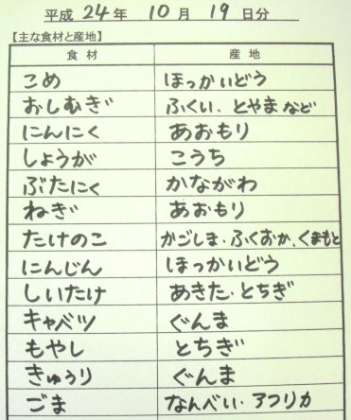 平成 24年 10月 19日分
【主な食材と産地】
食材 産地
こめ ほっかいどう
おしむぎ ふくい、とやまなど
にんにく あおもり
しょうが こうち
ぶたにく かながわ
ねぎ あおもり
たけのこ かごしま・ふくおか、くまもと
にんじん ほっかいどう
しいたけ あきた・とちぎ
キャベツ ぐんま
もやし とちぎ
きゅうり ぐんま
ごま なんべい・アフリカ